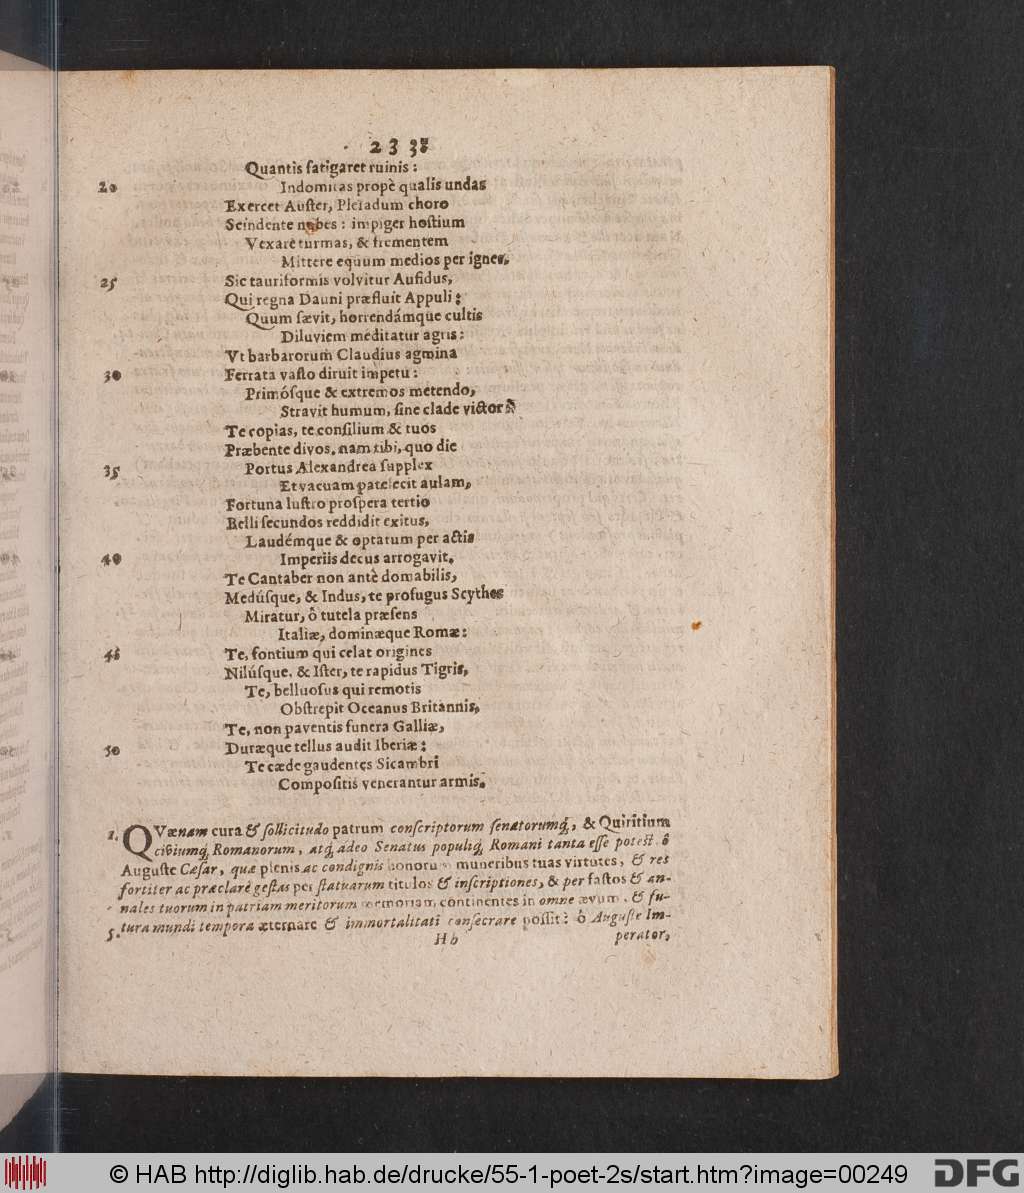 233
Quantis fatigaret ruinis:
20 Indomitas propè qualis undas
Exercet Auſter, Pleiadum choro
Scindente nubes: impiger hoſtium
Vexare turmas, & frementem
Mittere equum medios per ignes.
25 Sic tauriformis volvitur Aufidus,
Qui regna Dauni præfluit Appuli;
Quum ſævit, horrendámque cultis
Diluviem meditatur agris:
Vt barbarorum Claudius agmina
30 Ferrata vaſto diruit impetu:
Primóſque & extremos metendo,
Stravit humum, ſine clade victor
Te copias, te conſilium & tuos
Præbente divos. nam tibi, quo die
35 Portus Alexandrea ſupplex
Et vacuam patefecit aulam,
Fortuna luſtro proſpera tertio
Belli ſecundos reddidit exitus,
Laudémque & optatum per actis
40 Imperiis decus arrogavit.
Te Cantaber non antè domabilis,
Medúſque, & Indus, te profugus Scythes
Miratur, ô tutela præſens
Italiæ, dominæque Romæ:
45 Te, fontium qui celat origines
Nilúſque, & Iſter, te rapidus Tigris,
Te, belluoſus qui remotis
Obſtrepit Oceanus Britannis,
Te, non paventis funera Galliæ,
50 Duræque tellus audit Iberiæ:
Te cæde gaudentes Sicambri
Compoſitis venerantur armis.
1. QVænam cura & ſollicitudo patrum conſcriptorum ſenatorumq́, & Quiritium
civiumq́ Romanorum, atq́ adeo Senatus populiq́ Romani tanta eſſe poteſt ô
Auguſte Cæſar, quæ plenis ac condignis honorum muneribus tuas virtutes, & res
fortiter ac præclarè geſtas per ſtatuarum titulos & inſcriptiones, & per faſtos & an-
nales tuorum in patriam meritorum memoriam continentes in omne ævum, & fu-
5. tura mundi tempora æternare & immortalitati conſecrare poſſit? ô Auguſte Im-
Hh perator,
© HAB http://diglib.hab.de/drucke/55-1-poet-2s/start.htm?image=00249 DFG